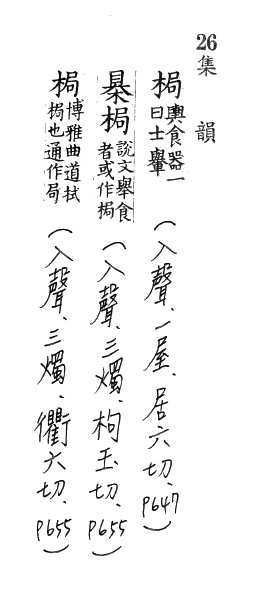 26 集韻
梮 輿食器一曰士轝（入聲、一屋、居六切、P647）
梮 說文舉食者或作梮（入聲、三燭、枸玉切、P655）
梮 博雅曲道栻梮也通作局（入聲、三燭、衢六切、P655）